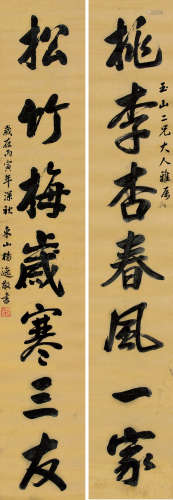 桃李杏春風一家
玉山二兄大人雅屬
松竹梅歲寒三友
歲在丙寅年深秋
東山楊逸敬書